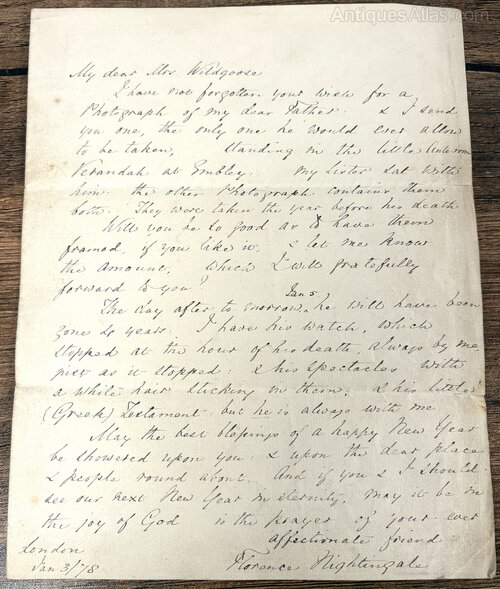 AntiquesAtlas.com
My dear Mrs. Wildgoose
I have not forgotten your wish for a
Photograph of my dear Father: & I send
you one, the only one he would ever allow
to be taken, standing in the little
Verandah at Embley: my Sister sat with
him: the other Photograph contains them
both. They were taken the year before his death
Will you be so good as to have them
framed, if you like it, & let me know
the amount, which I will gratefully
forward to you?
The day after to morrow, Jan 5, he will have been
gone 4 years. I have his watch, which
stopped at the hour of his death, always by me
just as it stopped: & his spectacles with
a white hair sticking in them: & his little
(Greek) Testament: but he is always with me
May the best blessings of a happy New Year
be showered upon you: & upon the dear place
& people round about. And if you & I should
see our next New Year in eternity, may it be in
the joy of God is the prayer of your ever
affectionate friend
London
Jan 3/78
Florence Nightingale